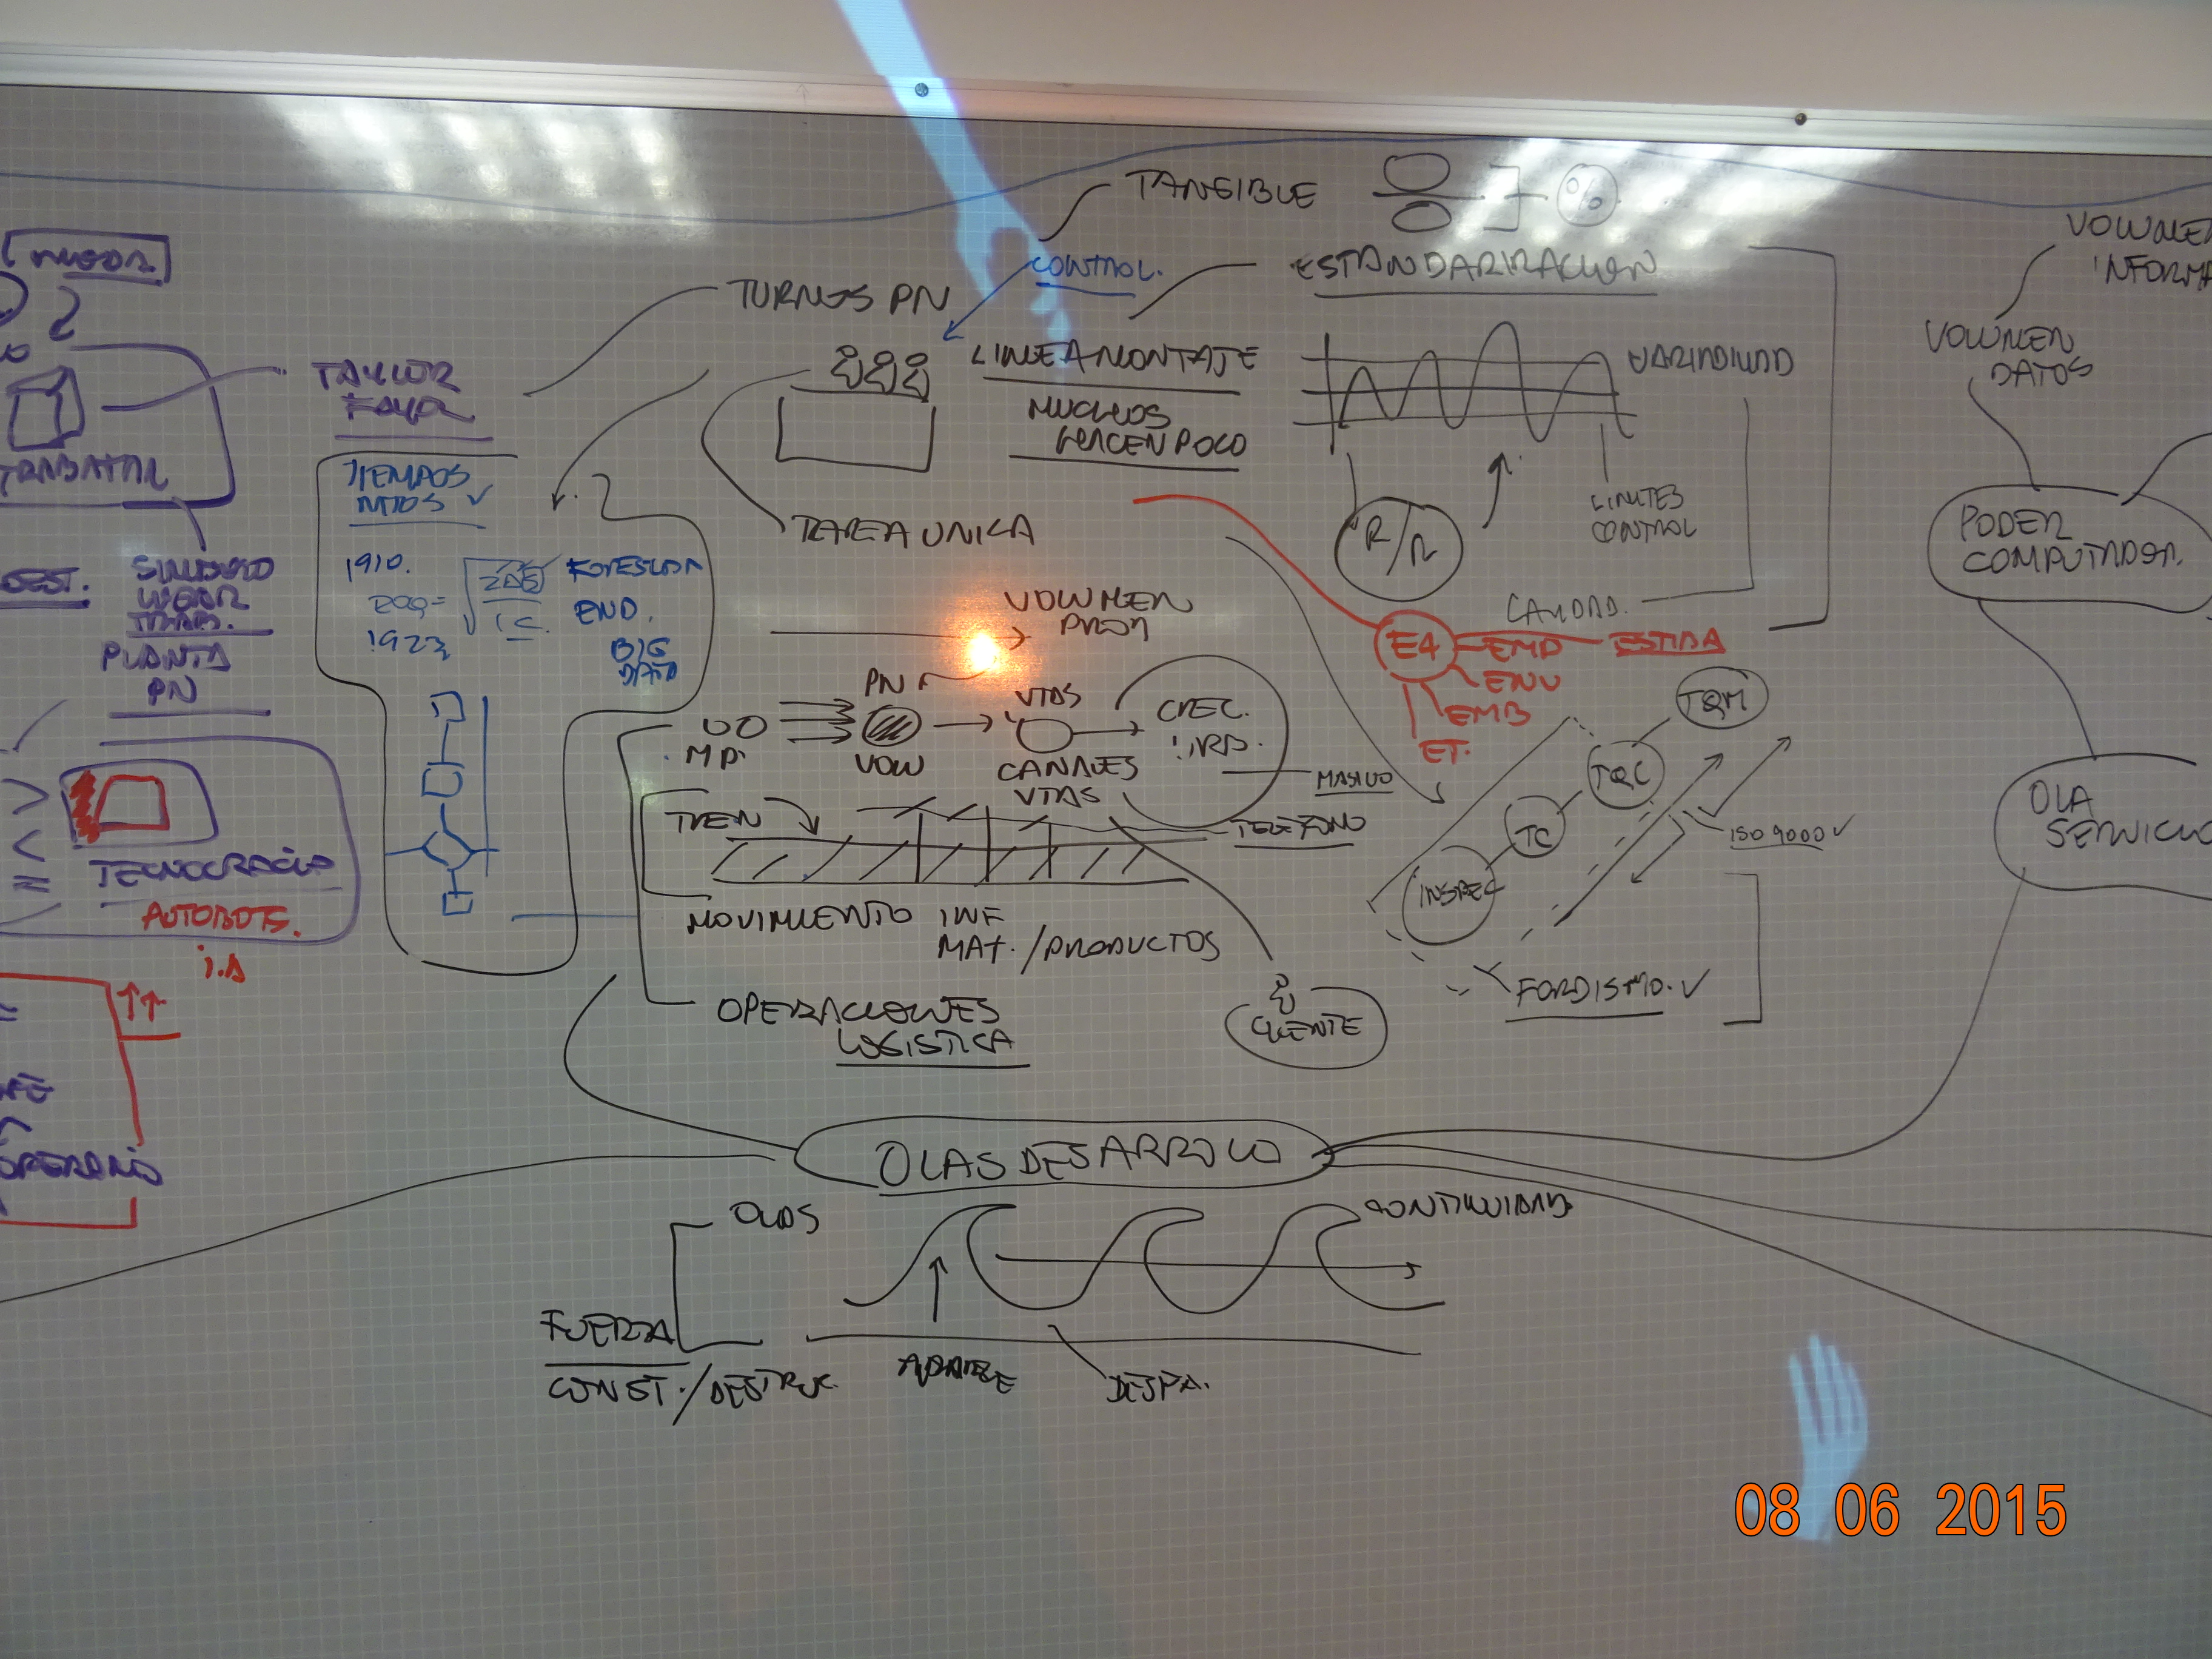 TANGIBLE
%
CONTROL.
ESTANDARIZACION
TURNOS PN
LINEA MONTAJE
MUCHOS
HACEN POCO
VARIABILIDAD
LIMITES
CONTROL
R/R
TAREA UNICA
TAYLOR
FAYOL
TRABAJAR
TIEMPOS
MTOS ✓
1910.
1923
END.
BIG
DATA
SINDICATO
TRAB.
PLANTA
PN
TECNOCRACIA
AUTOBOTS.
i.A
OPERARIO
VOLUMEN
PRON
PN
VOLU
MP.
VTAS
CANALES
VTAS
CREC.
MASIVO
TREN
TELEFONO
MOVIMIENTO INF
MAT. / PRODUCTOS
OPERACIONES
LOGISTICA
CLIENTE
CALIDAD.
E4
EMP
ENV
EMB
ET.
TQM
TQC
TC
INSPEC
ISO 9000 ✓
FORDISMO. ✓
VOLUMEN
INFORMA
VOLUMEN
DATOS
PODER
COMPUTADOR.
OLA
SERVICIO
OLAS DESARROLLO
OLAS
CONTINUIDAD
FUERZA
CONST. / DESTRUC.
DESPA.
08 06 2015